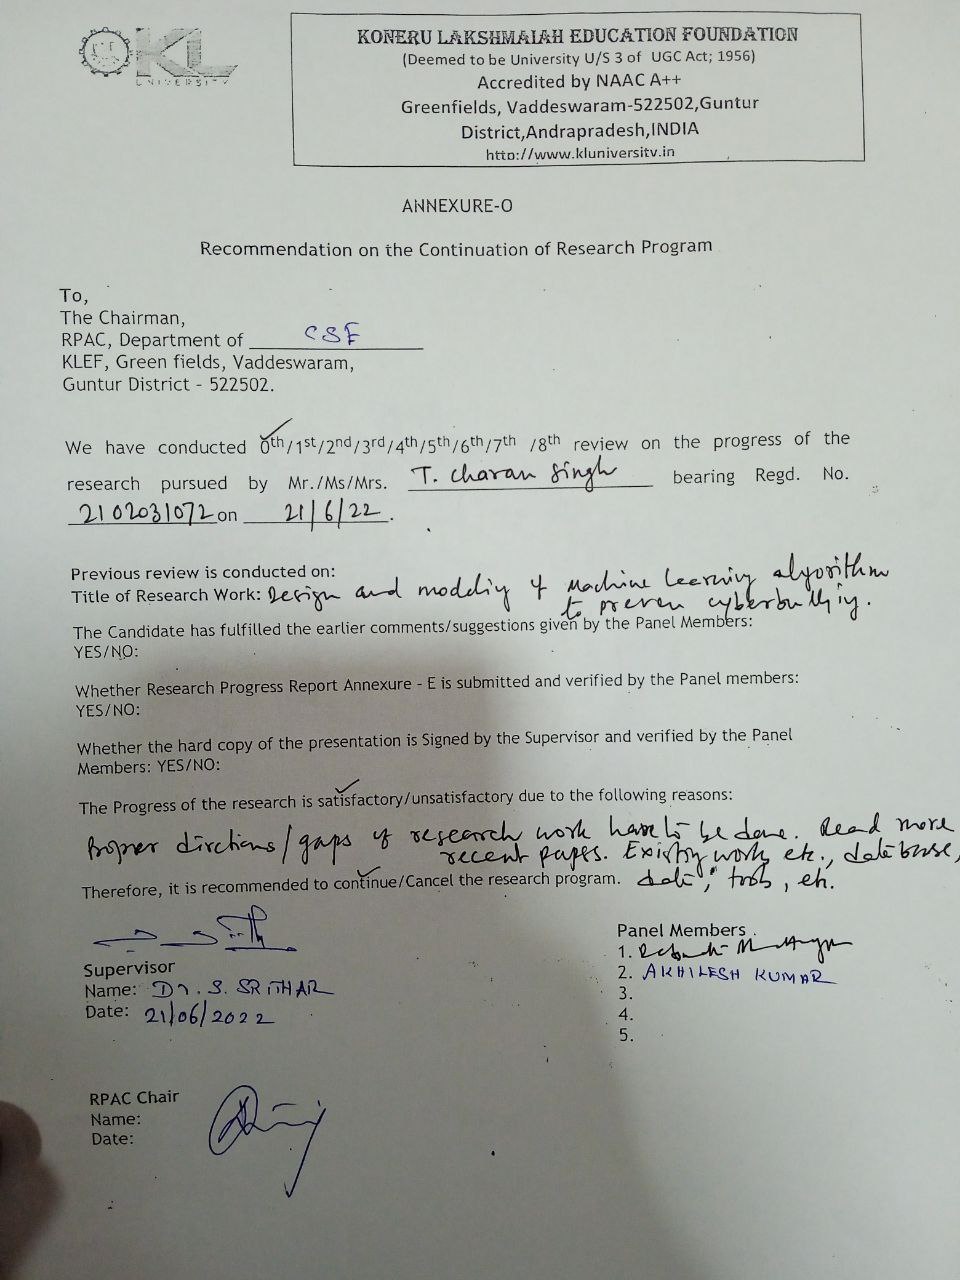 KL
UNIVERSITY
KONERU LAKSHMAIAH EDUCATION FOUNDATION
(Deemed to be University U/S 3 of UGC Act; 1956)
Accredited by NAAC A++
Greenfields, Vaddeswaram-522502,Guntur
District,Andrapradesh,INDIA
http://www.kluniversity.in
ANNEXURE-O
Recommendation on the Continuation of Research Program
To,
The Chairman,
RPAC, Department of CSE
KLEF, Green fields, Vaddeswaram,
Guntur District - 522502.
We have conducted 0th/1st/2nd/3rd/4th/5th/6th/7th /8th review on the progress of the
research pursued by Mr./Ms/Mrs. T. Charan Singh bearing Regd. No.
2102031072 on 21/6/22.
Previous review is conducted on:
Title of Research Work: Design and modeling of Machine learning algorithm
to preven cyberbullying.
The Candidate has fulfilled the earlier comments/suggestions given by the Panel Members:
YES/NO:
Whether Research Progress Report Annexure - E is submitted and verified by the Panel members:
YES/NO:
Whether the hard copy of the presentation is Signed by the Supervisor and verified by the Panel
Members: YES/NO:
The Progress of the research is satisfactory/unsatisfactory due to the following reasons:
Proper dirctions/gaps of research work have to be done. Read more
recent papes. Existing work etc., database,
Therefore, it is recommended to continue/Cancel the research program. data, tools, etc.
Supervisor
Name: Dr. S. SRITHAR
Date: 21/06/2022
Panel Members
1.
2. AKHILESH KUMAR
3.
4.
5.
RPAC Chair
Name:
Date: